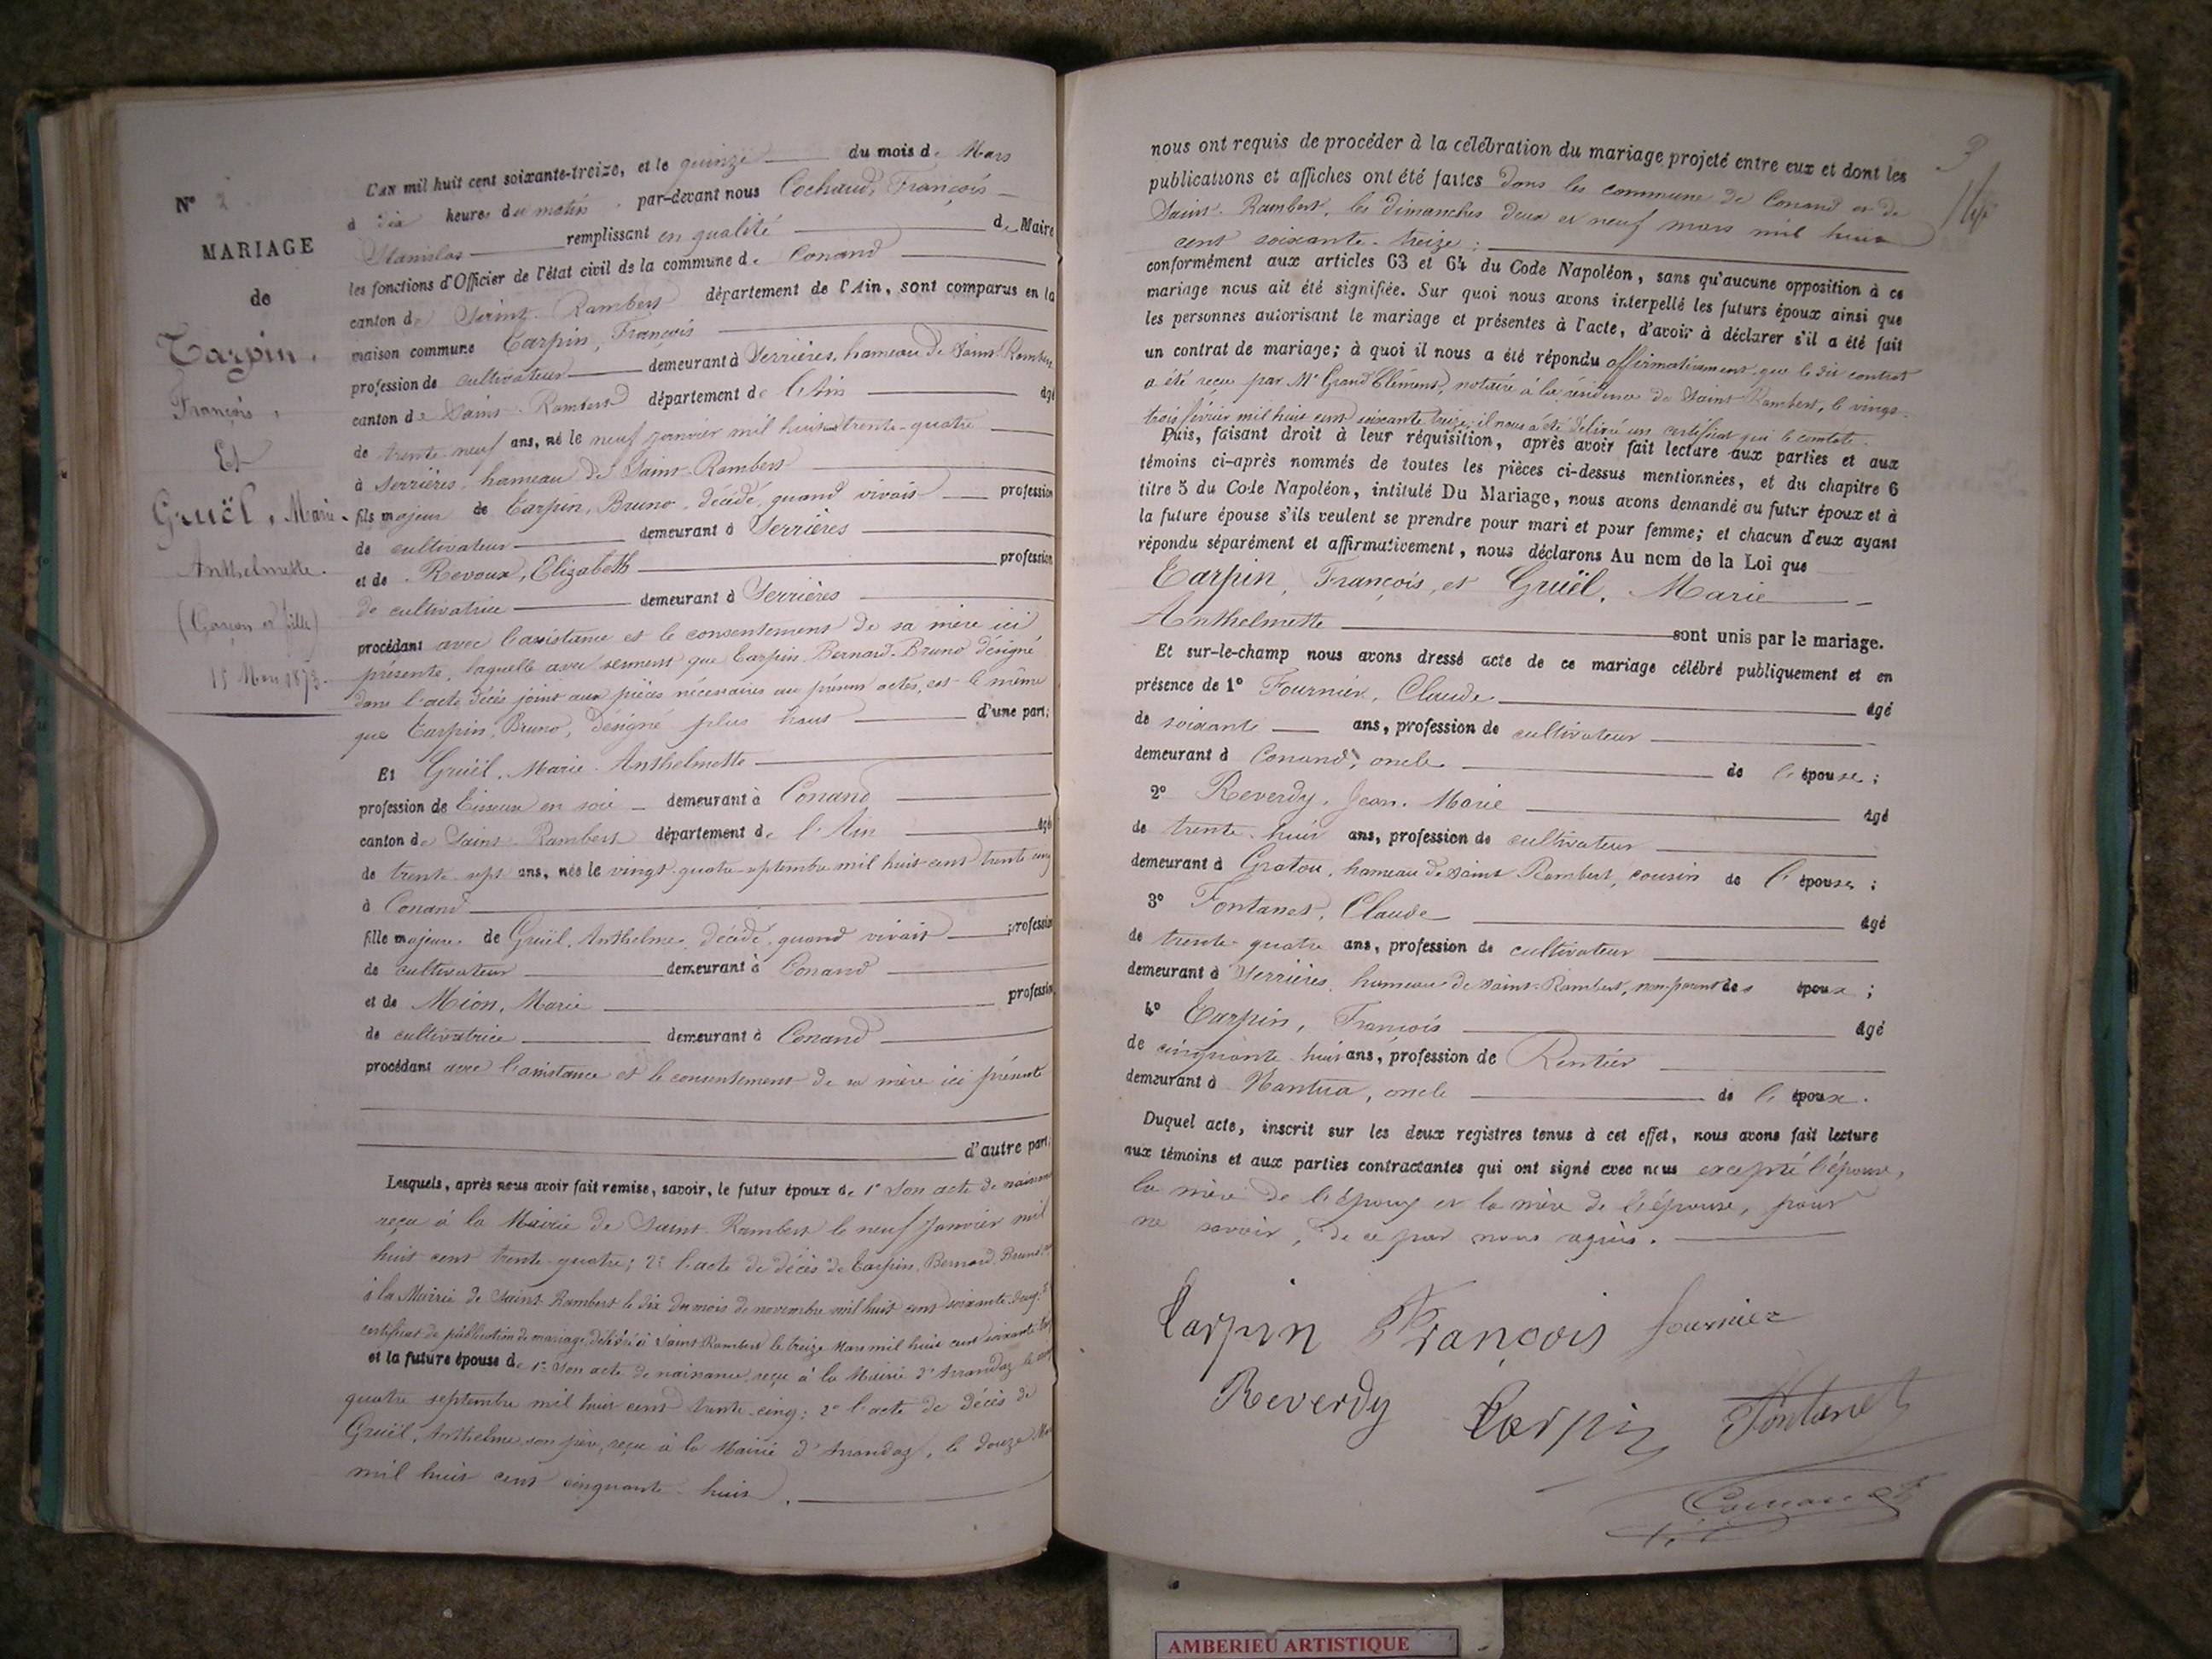 N° 2.
MARIAGE
de
Tarpin,
François,
Et
Gruël, Marie-
Anthelmette.
(Garçon et fille)
15 Mars 1873.
L'AN mil huit cent soixante-treize, et le quinze du mois de Mars
à dix heures du matin, par-devant nous Cochaud, François
Stanislas remplissant en qualité de Maire
les fonctions d'Officier de l'état civil de la commune de Conand
canton de Saint-Rambert département de l'Ain, sont comparus en la
maison commune Tarpin, François
profession de cultivateur demeurant à Serrières, hameau de Saint-Rambert
canton de Saint-Rambert département de l'Ain âgé
de trente-neuf ans, né le neuf janvier mil huit cent trente-quatre
à Serrières, hameau de Saint-Rambert
fils majeur de Tarpin, Bruno, décédé, quand vivait profession
de cultivateur demeurant à Serrières
et de Revoux, Elizabeth profession
de cultivatrice demeurant à Serrières
procédant avec l'assistance et le consentement de sa mère ici
présente, laquelle avec serment que Tarpin Bernard-Bruno désigné
dans l'acte décès joint aux pièces nécessaires au présent actes, est le même
que Tarpin, Bruno, désigné plus haut d'une part;
Et Gruël, Marie-Anthelmette
profession de Tisseuse en soie demeurant à Conand
canton de Saint-Rambert département de l'Ain âgé
de trente-sept ans, née le vingt-quatre septembre mil huit cent trente-cinq
à Conand
fille majeure de Gruël, Anthelme, décédé, quand vivait profession
de cultivateur demeurant à Conand
et de Mion, Marie profession
de cultivatrice demeurant à Conand
procédant avec l'assistance et le consentement de sa mère ici présente
d'autre part;
Lesquels, après nous avoir fait remise, savoir, le futur époux de 1° Son acte de naissance
reçu à la Mairie de Saint-Rambert le neuf janvier mil
huit cent trente-quatre; 2° l'acte de décès de Tarpin, Bernard, Bruno
à la Mairie de Saint-Rambert le dix du mois de novembre mil huit cent soixante-deux;
certificat de publication de mariage, délivré à Saint-Rambert le treize Mars mil huit cent soixante
et la future épouse de 1° Son acte de naissance, reçu à la Mairie d'Arandaz le vingt
quatre septembre mil huit cent trente-cinq; 2° l'acte de décès de
Gruël, Anthelme, son père, reçu à la Mairie d'Arandaz, le douze Mai
mil huit cent cinquante-huit.
3
nous ont requis de procéder à la célébration du mariage projeté entre eux et dont les
publications et affiches ont été faites dans les commune de Conand et de
Saint-Rambert, les dimanches deux et neuf mars mil huit
cent soixante-treize;
conformément aux articles 63 et 64 du Code Napoléon, sans qu'aucune opposition à ce
mariage nous ait été signifiée. Sur quoi nous avons interpellé les futurs époux ainsi que
les personnes autorisant le mariage et présentes à l'acte, d'avoir à déclarer s'il a été fait
un contrat de mariage; à quoi il nous a été répondu affirmativement, que le dit contrat
a été reçu par Me Grand Clément, notaire à la résidence de Saint-Rambert, le vingt-
trois février mil huit cent soixante-treize; il nous a été délivré un certificat qui le constate.
Puis, faisant droit à leur réquisition, après avoir fait lecture aux parties et aux
témoins ci-après nommés de toutes les pièces ci-dessus mentionnées, et du chapitre 6
titre 5 du Code Napoléon, intitulé Du Mariage, nous avons demandé au futur époux et à
la future épouse s'ils veulent se prendre pour mari et pour femme; et chacun d'eux ayant
répondu séparément et affirmativement, nous déclarons Au nom de la Loi que
Tarpin, François, et Gruël, Marie
Anthelmette sont unis par le mariage.
Et sur-le-champ nous avons dressé acte de ce mariage célébré publiquement et en
présence de 1° Fournier, Claude âgé
de soixante ans, profession de cultivateur
demeurant à Conand, oncle de l'épouse;
2° Reverdy, Jean-Marie âgé
de trente-huit ans, profession de cultivateur
demeurant à Gratou, hameau de Saint-Rambert, cousin de l'épouse;
3° Fontanet, Claude âgé
de trente-quatre ans, profession de cultivateur
demeurant à Serrières, hameau de Saint-Rambert, non parent des époux;
4° Tarpin, François âgé
de cinquante-huit ans, profession de Rentier
demeurant à Nantua, oncle de l'époux.
Duquel acte, inscrit sur les deux registres tenus à cet effet, nous avons fait lecture
aux témoins et aux parties contractantes qui ont signé avec nous excepté l'épouse,
la mère de l'époux et la mère de l'épouse, pour
ne savoir, de ce par nous requis.
Tarpin François fournier
Reverdy Tarpin Fontanet
AMBERIEU ARTISTIQUE